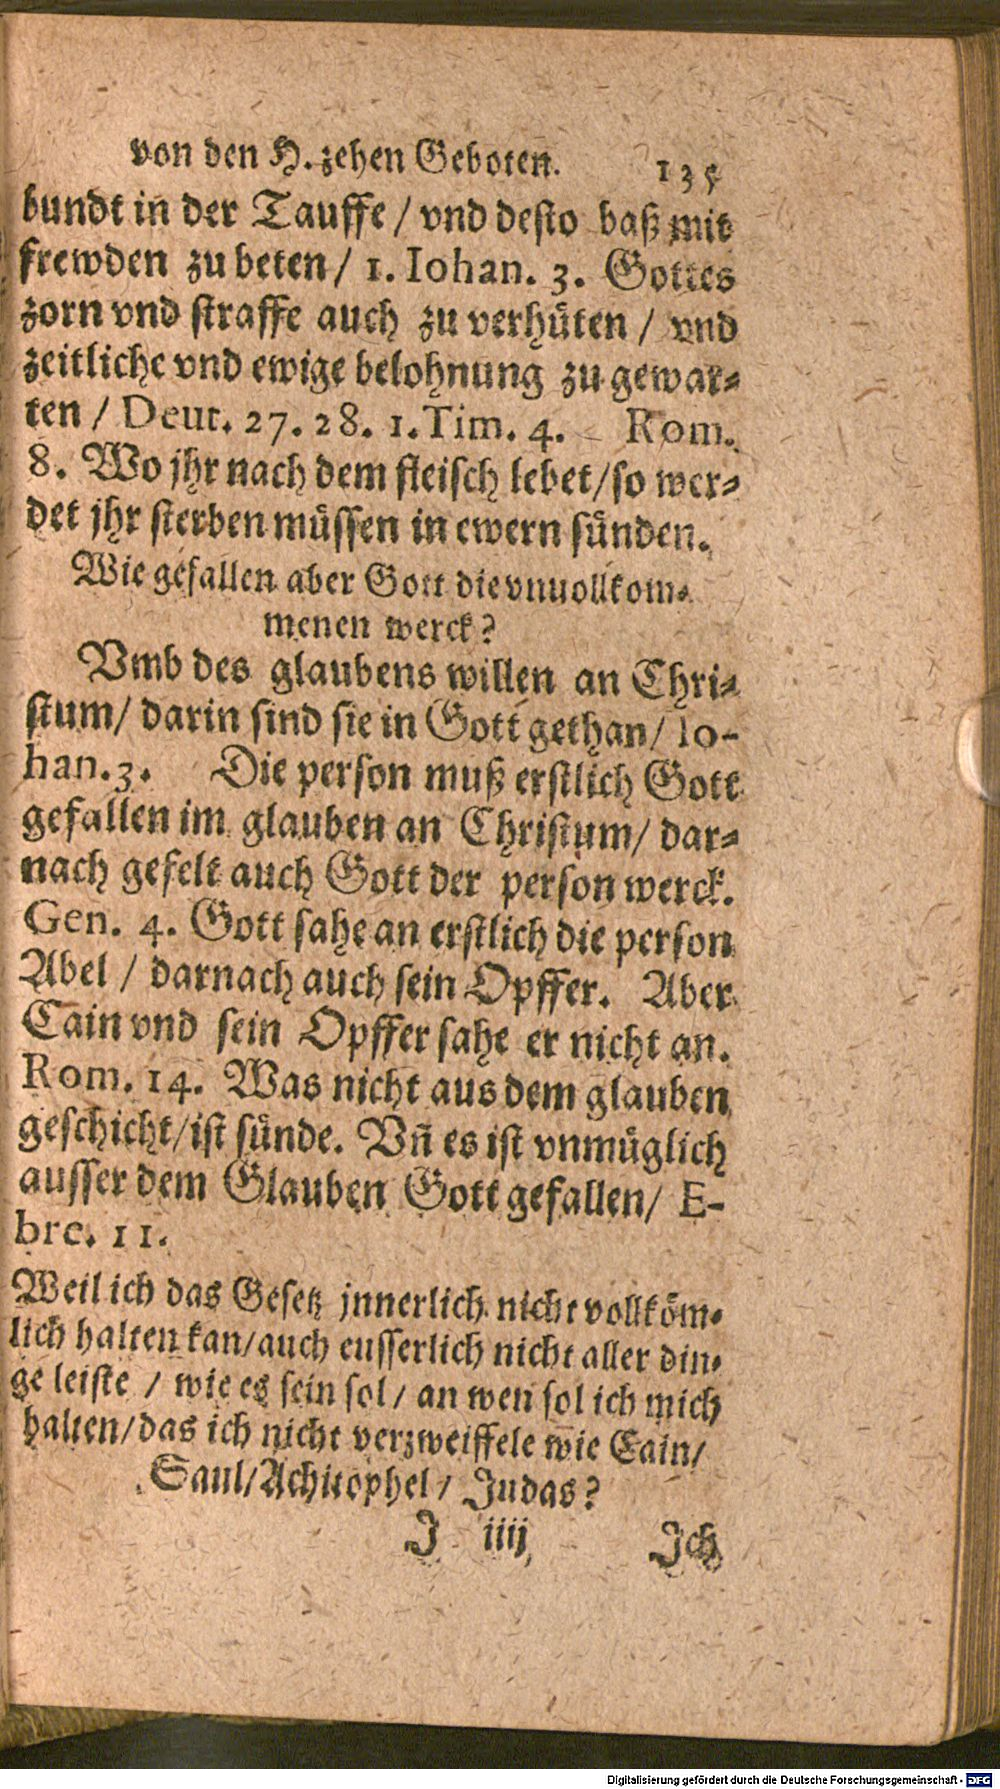 von den H. zehen Geboten. 135
bundt in der Tauffe / vnd desto baß mit
frewden zu beten / 1. Iohan. 3. Gottes
zorn vnd straffe auch zu verhüten / vnd
zeitliche vnd ewige belohnung zu gewar⸗
ten / Deut. 27. 28. 1. Tim. 4. Rom.
8. Wo jhr nach dem fleisch lebet/so wer⸗
det jhr sterben müssen in ewern sünden.
Wie gefallen aber Gott die vnuollkom⸗
menen werck?
Vmb des glaubens willen an Chri⸗
stum/ darin sind sie in Gott gethan/ Io-
han. 3. Die person muß erstlich Gott
gefallen im glauben an Christum/ dar⸗
nach gefelt auch Gott der person werck.
Gen. 4. Gott sahe an erstlich die person
Abel / darnach auch sein Opffer. Aber
Cain vnd sein Opffer sahe er nicht an.
Rom. 14. Was nicht aus dem glauben
geschicht/ist sünde. Vn̄ es ist vnmüglich
ausser dem Glauben Gott gefallen/ E-
bre. 11.
Weil ich das Gesetz jnnerlich nicht vollköm⸗
lich halten kan/auch eusserlich nicht aller din⸗
ge leiste / wie es sein sol/ an wen sol ich mich
halten/das ich nicht verzweiffele wie Cain/
Saul/Achitophel/ Judas?
J iiij Ich
Digitalisierung gefördert durch die Deutsche Forschungsgemeinschaft - DFG